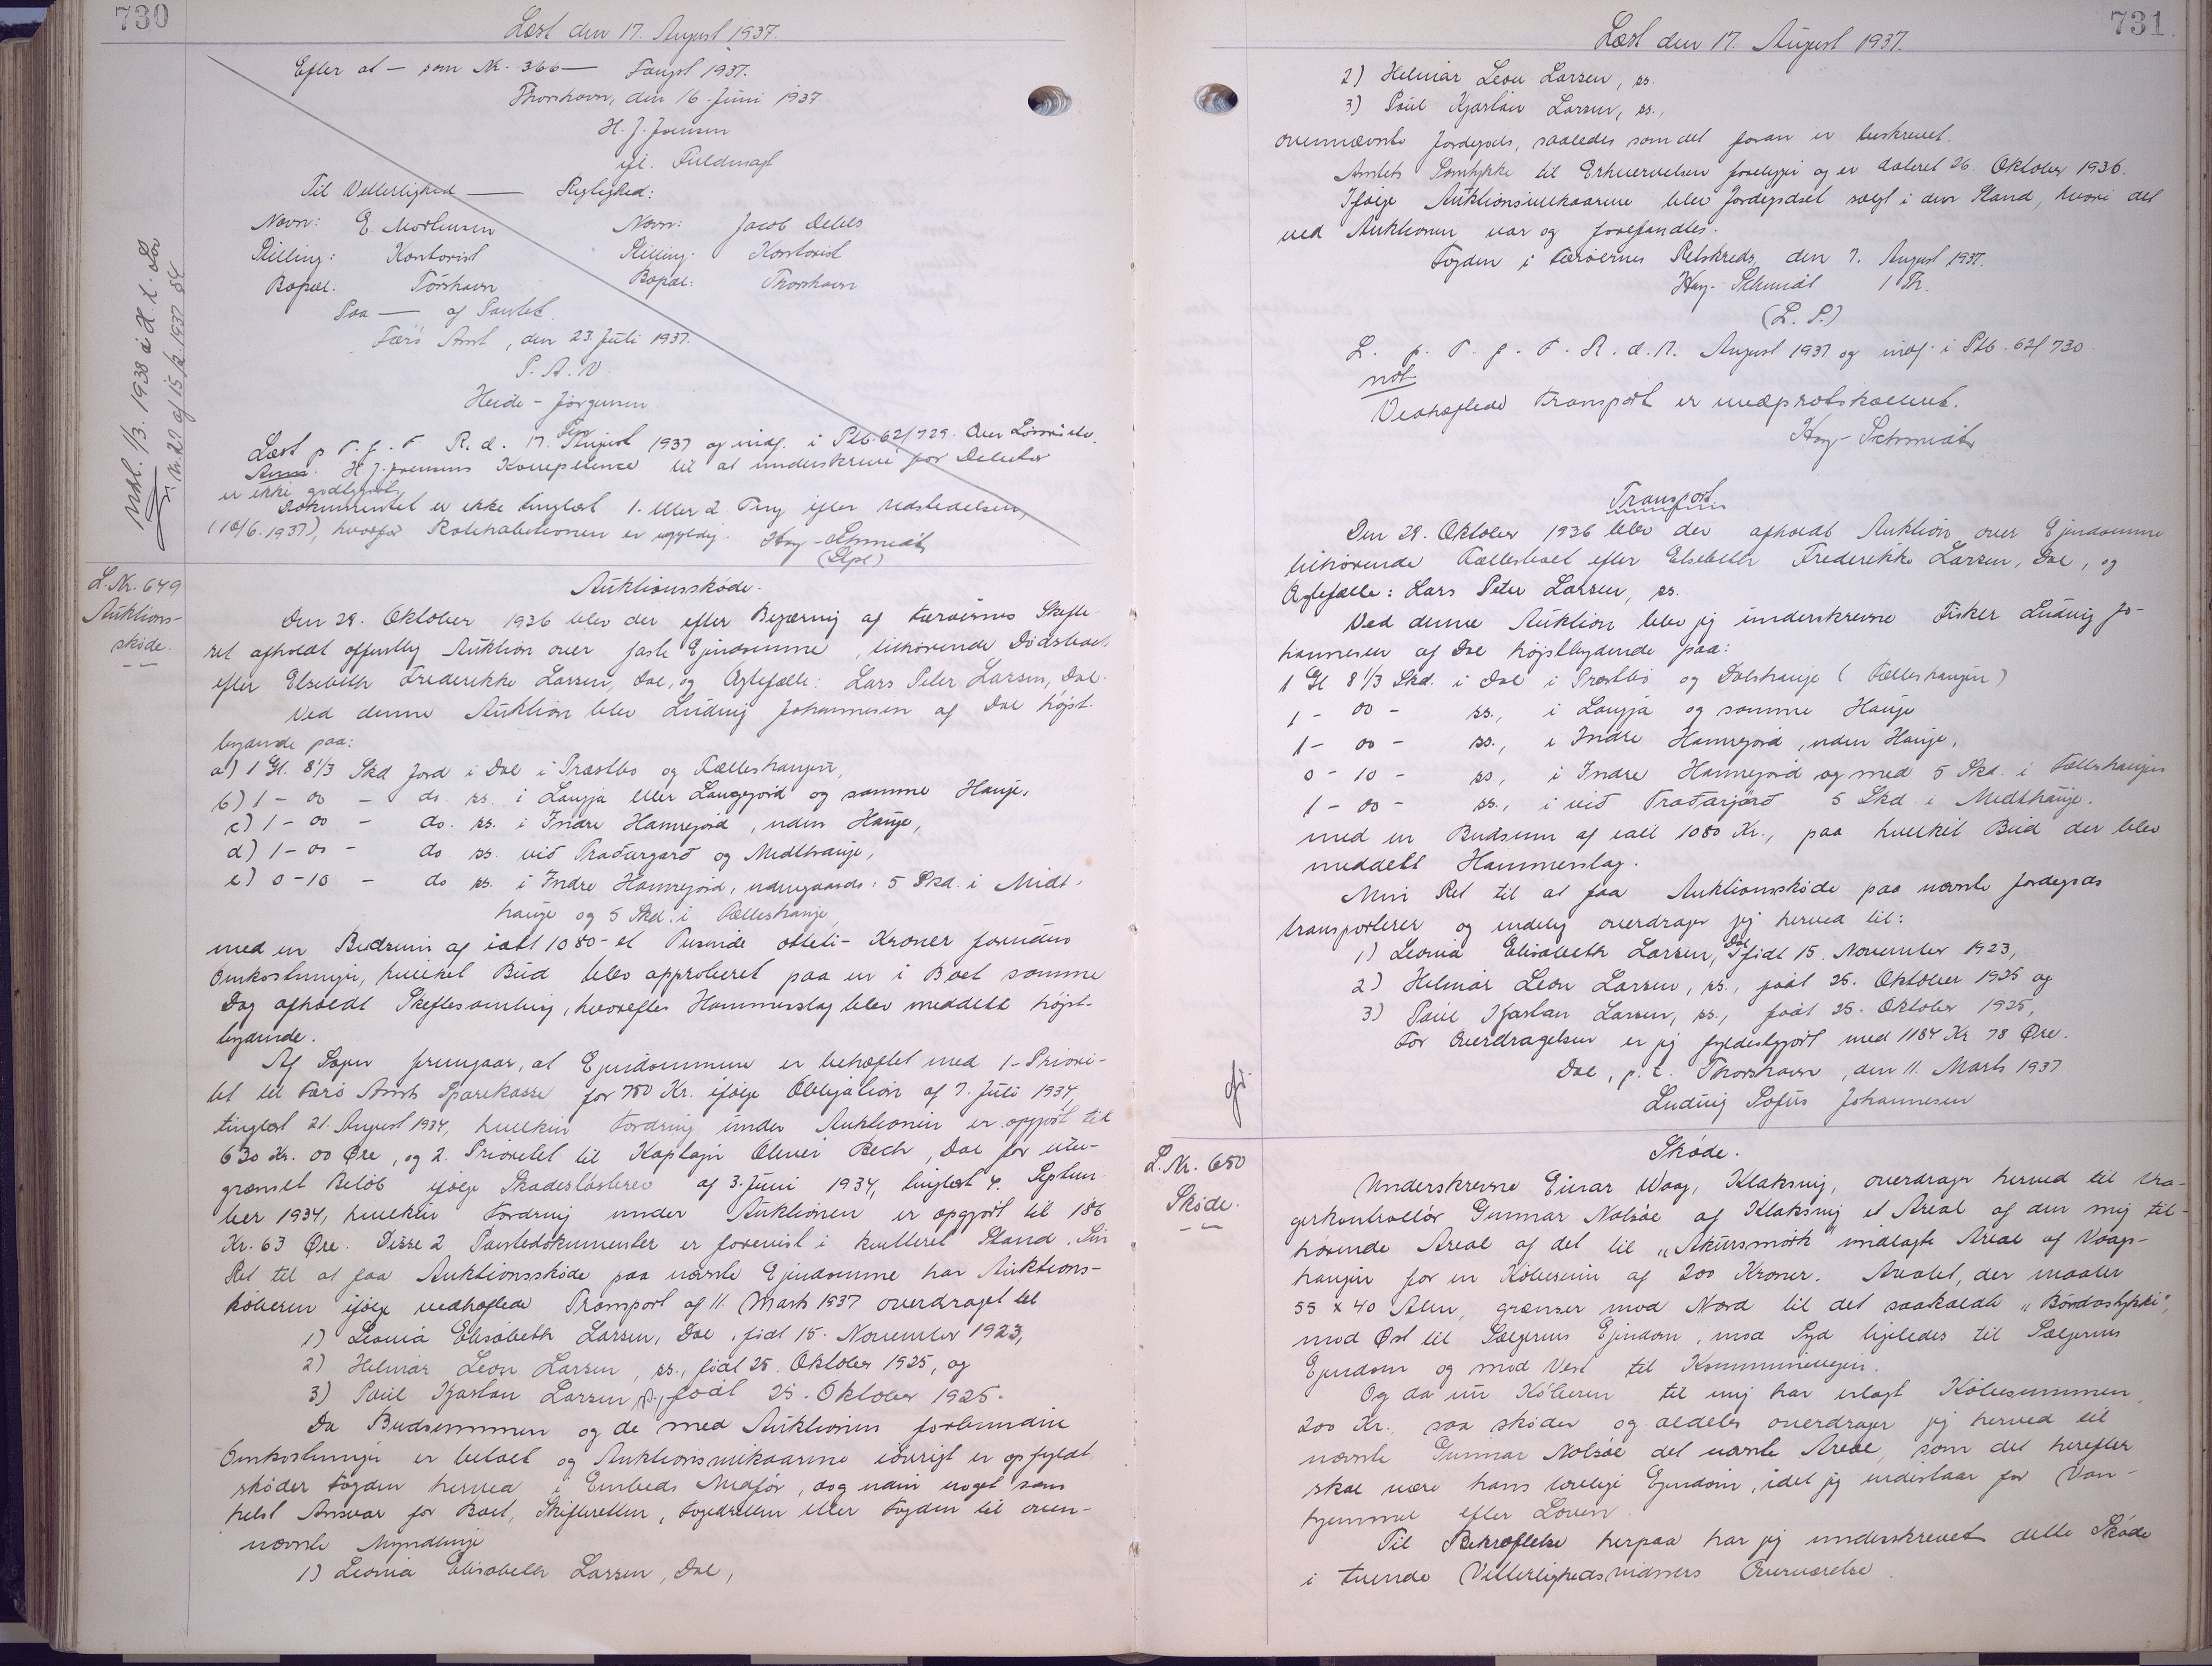 730
Læst den 17. August 1937.
Efter at — som Nr. 366 — Faugst 1937.
Thorshavn, den 16. Juni 1937
H. J. Joensen
ifl. Fuldmagt
Til Vetterlighed — Rigtighed:
Navn: E Mortensen Navn: Jacob Debes
Stilling: Kontorist Stilling: Kontorist
Bopæl: Tórshavn Bopæl: Thorshavn
Paa — af Pantet.
Færø Amt, den 23. Juli 1937.
P. A. V.
Heide-Jørgensen
Læst p T. f. F R. d. 17. August 1937 og indf. i Ptb. 62/729.
Anm. H. J. Joensens Kompetence til at underskrive for Debitor
er ikke godtgjort.
Dokumentet er ikke tinglæst 1. eller 2 Ting efter Udstedelsen,
(16/6. 1937), hvorfor Ratehabitionen er ugyldig. Hoy-Schmidt
L. Nr. 649
Auktions-
skøde.
Auktionsskøde.
Den 29. Oktober 1936 blev der efter Begæring af Færøernes Skifte-
ret afholdt offentlig Auktion over faste Ejendomme, tilhørende Dødsboet
efter Elsebeth Frederikke Larsen, Dal, og Ægtefælle: Lars Peter Larsen, Dal.
Ved denne Auktion blev Ludvig Johannesen af Dal højst-
bydende paa:
a) 1 Gl. 8 1/3 Skd Jord i Dal i Præstbø og Fælleshaugen,
b) 1 - 00 - do. ss. i Laugja eller Laugejord og samme Hauge,
c) 1 - 00 - do. ss. i Indre Hamrejord, uden Hauge,
d) 1 - 00 - do ss. við Traðargarð og Midthauge,
e) 0 - 10 - do ss. i Indre Hamrejord, udengaards: 5 Skd. i Midt-
hauge og 5 Skd. i Fælleshauge,
med en Budsum af ialt 1080 - et Tusinde otteti - Kroner foruden
Omkostninger, hvilket Bud blev approberet paa en i Boet samme
Dag afholdt Skiftesamling, hvorefter Hammerslag blev meddelt højst-
bydende.
Af Sagen fremgaar, at Ejendommene er behæftet med 1. Priori-
tet til Færø Amts Sparekasse for 750 Kr. ifølge Obligation af 7. Juli 1934,
tinglæst 21. August 1934, hvilken Fordring under Auktionen er opgjort til
630 Kr. 00 Øre, og 2. Prioritet til Kaptajn Oliver Bech, Dal for ube-
grænset Beløb ifølge Skadesløsbrev af 3. Juni 1934, tinglæst 4. Septem-
ber 1934, hvilken Fordring under Auktionen er opgjort til 186
Kr. 63 Øre. Disse 2 Pantedokumenter er forevist i kvitteret Stand. Sin
Ret til at faa Auktionsskøde paa nævnte Ejendomme har Auktions-
køberen ifølge vedhæftede Transport af 11. Marts 1937 overdraget til
1) Leonia Elisabeth Larsen, Dal, født 15. November 1923,
2) Helmar Leon Larsen, ss., født 25. Oktober 1925, og
3) Paul Kjartan Larsen, ss., født 25. Oktober 1925.
Da Budsummen og de med Auktionen forbundne
Omkostninger er betalt og Auktionsvilkaarene iøvrigt er opfyldt
skøder Fogden herved i Embeds Medfør, dog uden noget som
helst Ansvar for Boet, Skifteretten, Fogedretten eller Fogden til oven-
nævnte Myndlinge
1) Leonia Elisabeth Larsen, Dal,
731.
Læst den 17. August 1937.
2) Helmar Leon Larsen, ss.
3) Paul Kjartan Larsen, ss.,
ovennævnte Jordegods, saaledes som det foran er beskrevet.
Amtets Samtykke til Erhvervelsen foreligger og er dateret 26. Oktober 1936.
Ifølge Auktionsvilkaarene blev Jordegodset solgt i den Stand, hvori det
ved Auktionen var og forefandtes.
Fogden i Færøernes Retskreds, den 7. August 1937.
Hoy-Schmidt
(L. S.)
L. p. T. f. F. R. d. 17. August 1937 og indf. i Ptb. 62/730.
not
Vedhæftede Transport er medprotokolleret.
Hoy-Schmidt
Transport
Den 29. Oktober 1936 blev der afholdt Auktion over Ejendomme
tilhørende Fællesboet efter Elsebeth Frederikke Larsen, Dal, og
Ægtefælle: Lars Peter Larsen, ss.
Ved denne Auktion blev jeg underskrevne Fisker Ludvig Jo-
hannesen af Dal højstbydende paa:
1 Gl 8 1/3 Skd. i Dal i Præstbø og Dalshauge (Fælleshaugen)
1 - 00 - ss., i Laugja og samme Hauge
1 - 00 - ss., i Indre Hamrejord, uden Hauge,
0 - 10 - ss, i Indre Hamrejord og med 5 Skd. i Fælleshaugen
1 - 00 - ss., i við Traðarjørð 5 Skd. i Midthauge.
med en Budsum af ialt 1080 Kr., paa hvilket Bud der blev
meddelt Hammerslag.
Min Ret til at faa Auktionsskøde paa nævnte Jordegods
transporterer og endelig overdrager jeg herved til:
1) Leonia Elisabeth Larsen, Dal, født 15. November 1923,
2) Helmar Leon Larsen, ss., født 25. Oktober 1925 og
3) Paul Kjartan Larsen, ss., født 25. Oktober 1925,
For Overdragelsen er jeg fyldestgjort med 1184 Kr. 78 Øre.
Dal, p. t. Thorshavn, den 11. Marts 1937
Ludvig Sofus Johannesen
L. Nr. 650
Skøde.
Skøde.
Underskrevne Einar Waag, Klaksvig, overdrager herved til Vra-
gerkontrollør Gunnar Nolsøe af Klaksvig et Areal af den mig til-
hørende Areal af det til „Akursmørk" indlagte Areal af Vaags-
haugen for en Købesum af 200 Kroner. Arealet, der maaler
55 x 40 Alen, grænser mod Nord til det saakaldte „Bóndastykki",
mod Øst til Sælgerens Ejendom, mod Syd ligeledes til Sælgerens
Ejendom og mod Vest til Kommunevejen.
Og da nu Køberen til mig har erlagt Købesummen,
200 Kr., saa skøder og aldeles overdrager jeg herved til
nævnte Gunnar Nolsøe det nævnte Areal, som det herefter
skal være hans lovlige Ejendom, idet jeg indestaar for Van-
hjemmel efter Loven.
Til Bekræftelse herpaa har jeg underskrevet dette Skøde
i tvende Vitterlighedsvidners Overværelse.